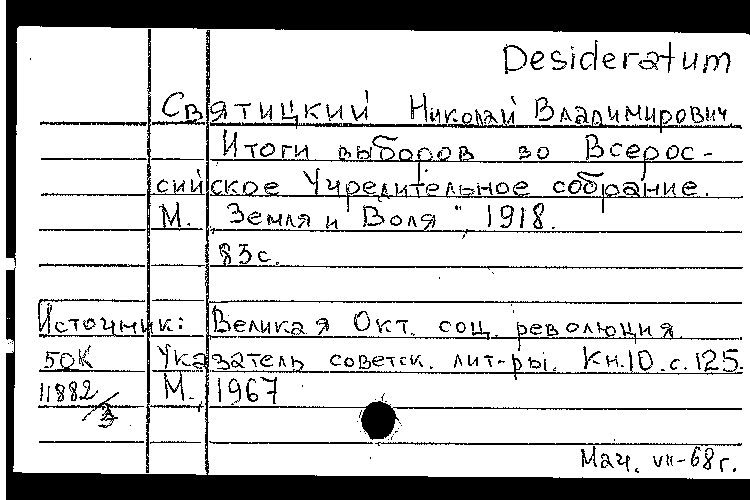 Desideratum
Святицкий Николай Владимирович
Итоги выборов во Всерос-
сийское Учредительное собрание.
М. „Земля и Воля", 1918.
83с.
Источник: Великая Окт. соц. революция.
50К Указатель советск. лит-ры. Кн.10. с.125.
11882/3 М., 1967
Мач. VII-68г.